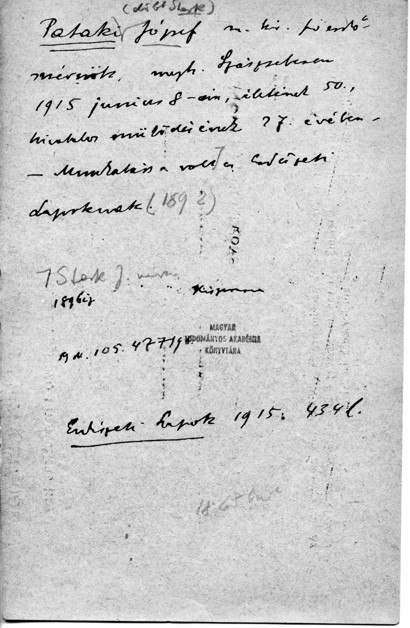 (előbb Stark)
Pataki József m. kir. főerdő-
mérnök, megh. Szászsebesen
1915 junius 8-án, életének 50.,
hivatalos működésének 27. évében –
– Munkatársa volt az Erdészeti
Lapoknak. (1892)
Stark J. néven
1896ig
M. 105. 47719
MAGYAR
TUDOMÁNYOS AKADÉMIA
KÖNYVTÁRA
Erdészeti Lapok 1915. 434 l.
1865